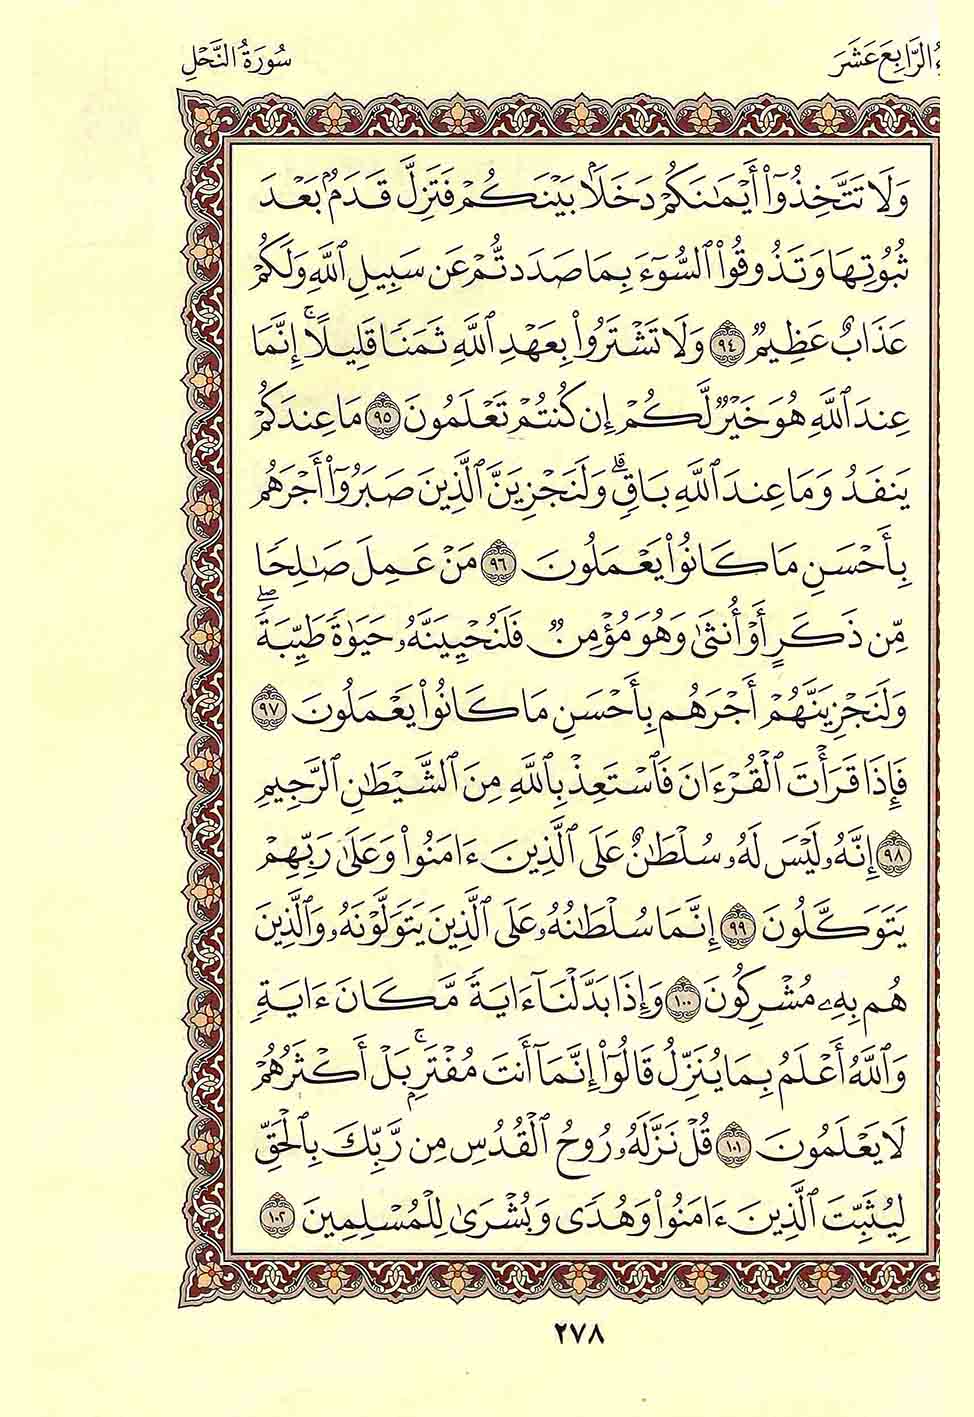 ءُ الرَّابِعَ عَشَرَ
سُورَةُ النَّحْلِ
وَلَا تَتَّخِذُوٓا۟ أَيْمَـٰنَكُمْ دَخَلًۢا بَيْنَكُمْ فَتَزِلَّ قَدَمٌۢ بَعْدَ
ثُبُوتِهَا وَتَذُوقُوا۟ ٱلسُّوٓءَ بِمَا صَدَدتُّمْ عَن سَبِيلِ ٱللَّهِ وَلَكُمْ
عَذَابٌ عَظِيمٌ ٩٤ وَلَا تَشْتَرُوا۟ بِعَهْدِ ٱللَّهِ ثَمَنًا قَلِيلًا ۚ إِنَّمَا
عِندَ ٱللَّهِ هُوَ خَيْرٌ لَّكُمْ إِن كُنتُمْ تَعْلَمُونَ ٩٥ مَا عِندَكُمْ
يَنفَدُ وَمَا عِندَ ٱللَّهِ بَاقٍ ۗ وَلَنَجْزِيَنَّ ٱلَّذِينَ صَبَرُوٓا۟ أَجْرَهُم
بِأَحْسَنِ مَا كَانُوا۟ يَعْمَلُونَ ٩٦ مَنْ عَمِلَ صَـٰلِحًا
مِّن ذَكَرٍ أَوْ أُنثَىٰ وَهُوَ مُؤْمِنٌ فَلَنُحْيِيَنَّهُۥ حَيَوٰةً طَيِّبَةً ۖ
وَلَنَجْزِيَنَّهُمْ أَجْرَهُم بِأَحْسَنِ مَا كَانُوا۟ يَعْمَلُونَ ٩٧
فَإِذَا قَرَأْتَ ٱلْقُرْءَانَ فَٱسْتَعِذْ بِٱللَّهِ مِنَ ٱلشَّيْطَـٰنِ ٱلرَّجِيمِ
٩٨ إِنَّهُۥ لَيْسَ لَهُۥ سُلْطَـٰنٌ عَلَى ٱلَّذِينَ ءَامَنُوا۟ وَعَلَىٰ رَبِّهِمْ
يَتَوَكَّلُونَ ٩٩ إِنَّمَا سُلْطَـٰنُهُۥ عَلَى ٱلَّذِينَ يَتَوَلَّوْنَهُۥ وَٱلَّذِينَ
هُم بِهِۦ مُشْرِكُونَ ١٠٠ وَإِذَا بَدَّلْنَآ ءَايَةً مَّكَانَ ءَايَةٍ
وَٱللَّهُ أَعْلَمُ بِمَا يُنَزِّلُ قَالُوٓا۟ إِنَّمَآ أَنتَ مُفْتَرٍۭ ۚ بَلْ أَكْثَرُهُمْ
لَا يَعْلَمُونَ ١٠١ قُلْ نَزَّلَهُۥ رُوحُ ٱلْقُدُسِ مِن رَّبِّكَ بِٱلْحَقِّ
لِيُثَبِّتَ ٱلَّذِينَ ءَامَنُوا۟ وَهُدًى وَبُشْرَىٰ لِلْمُسْلِمِينَ ١٠٢
٢٧٨